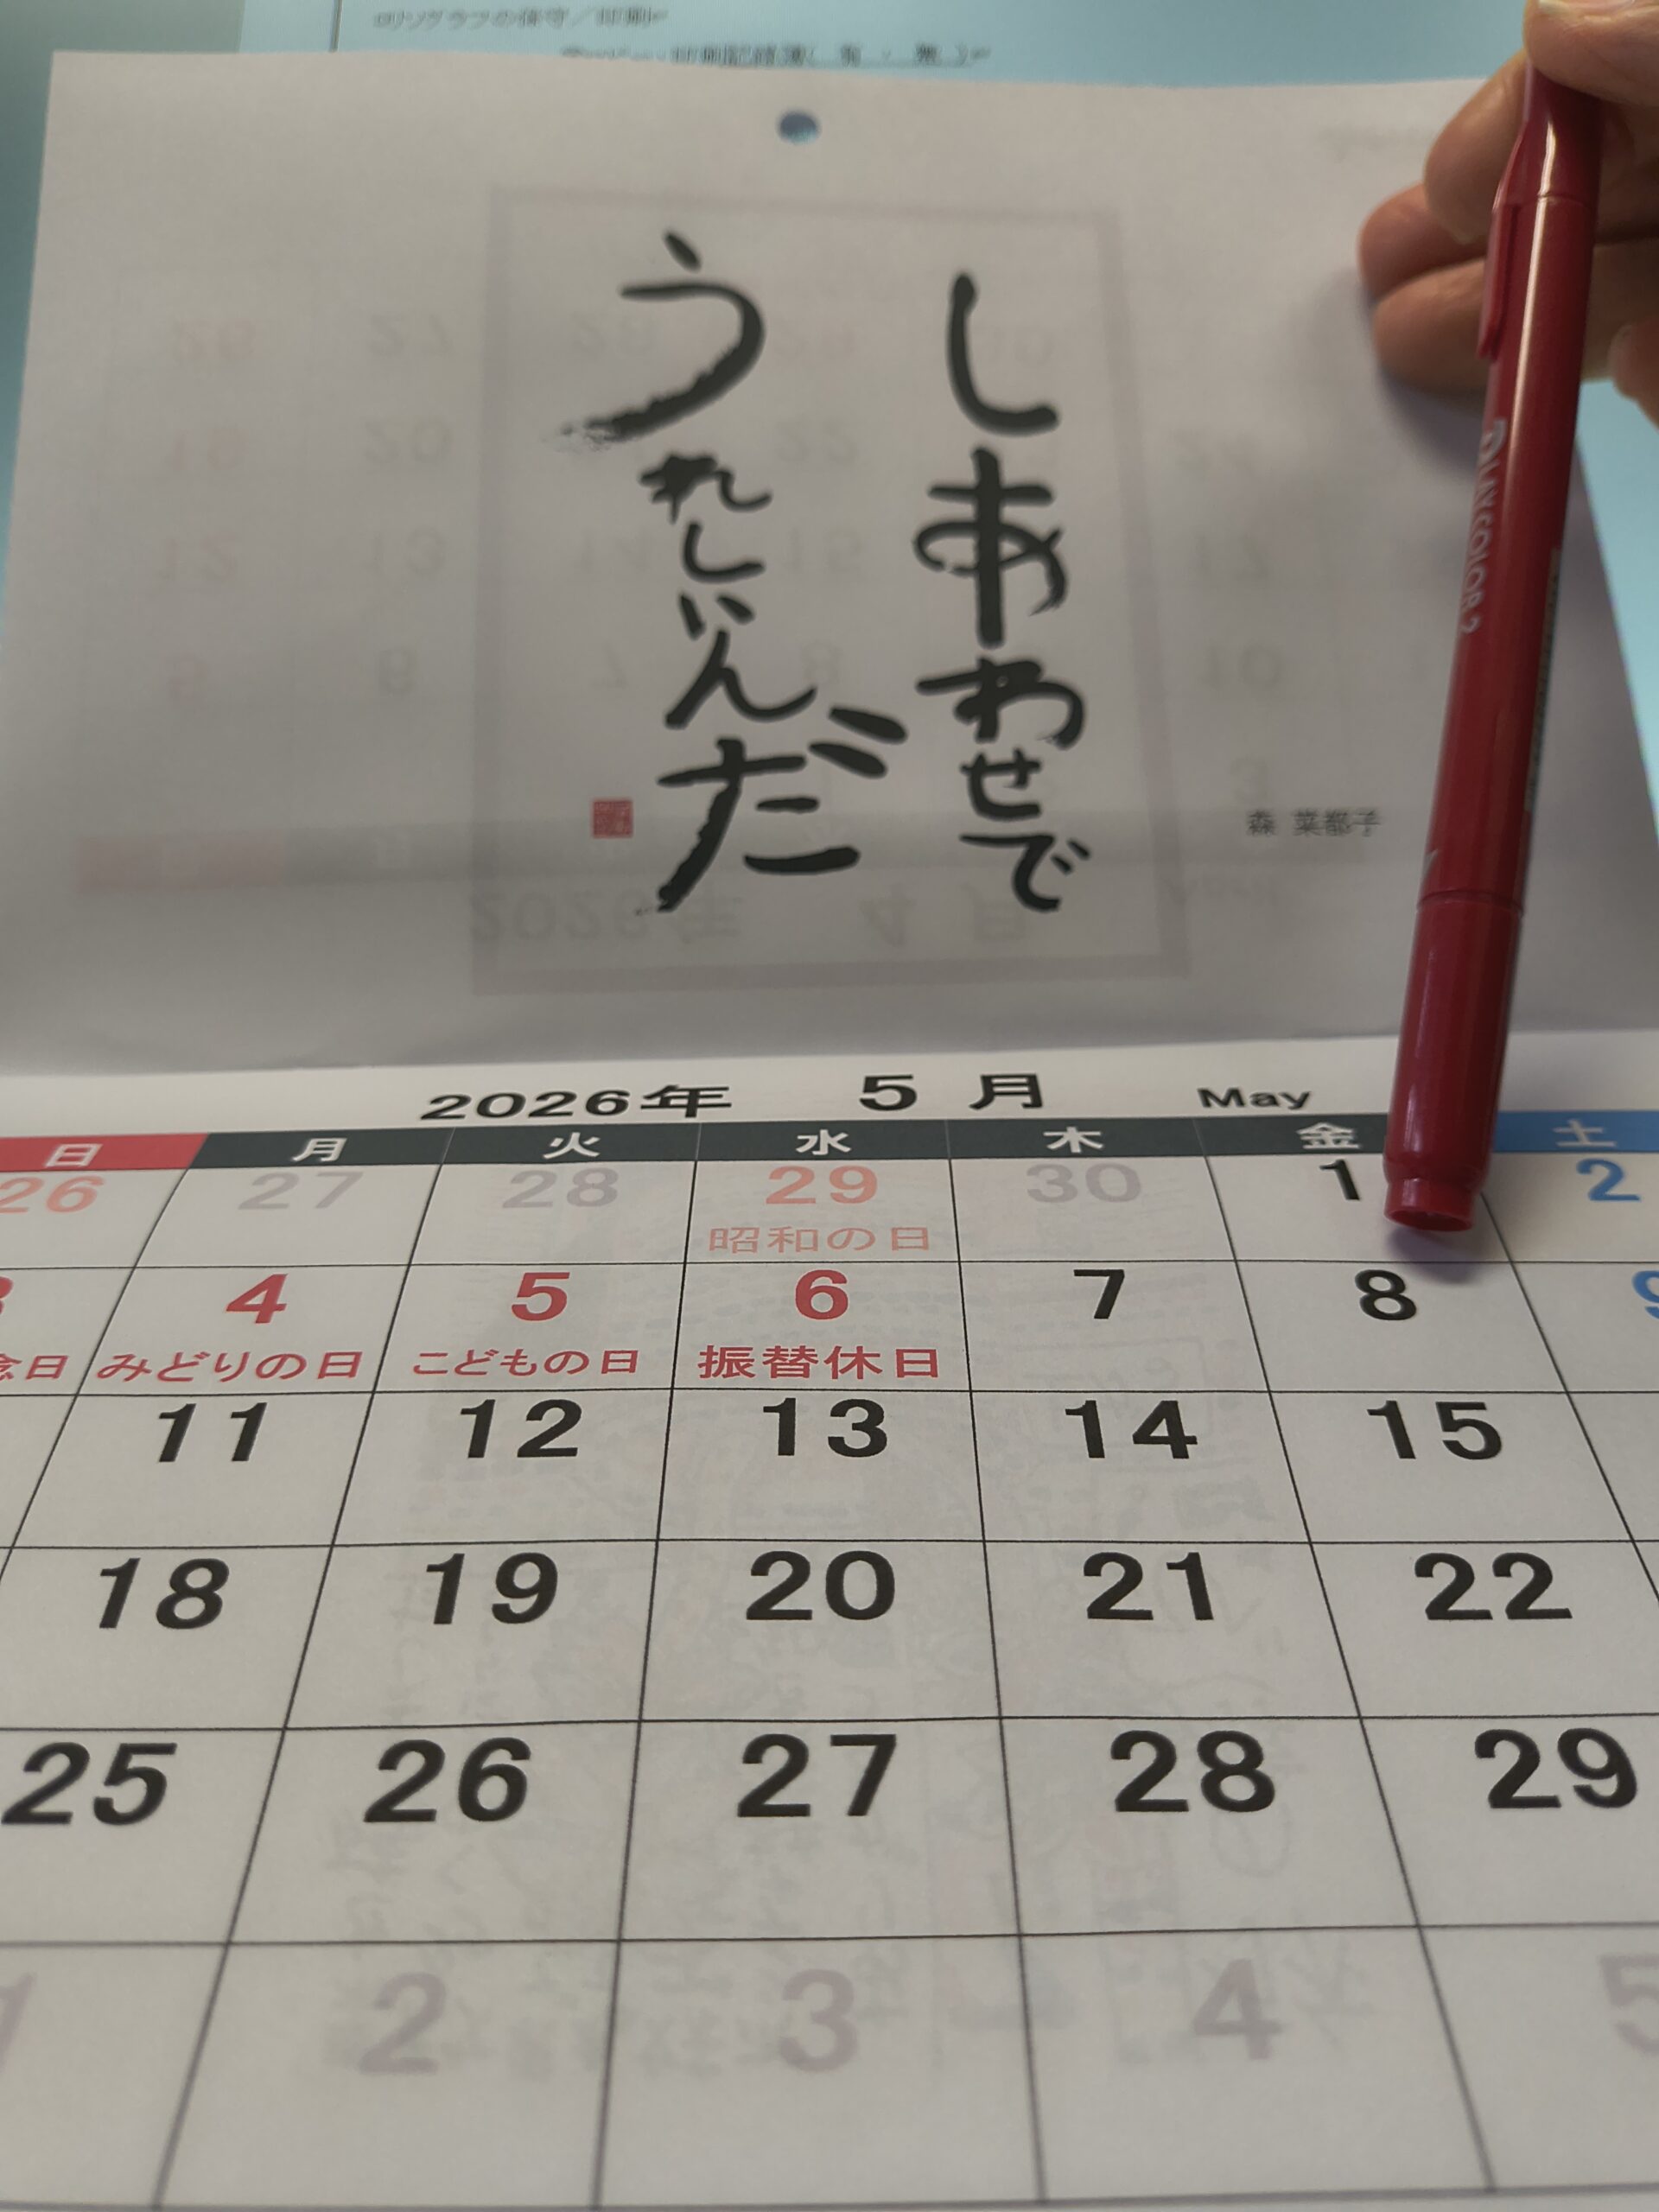 しあわせで
うれしいんだ
森 菜都子
PLAYCOLOR 2
2026年 5月 May
日 月 火 水 木 金 土
26 27 28 29 30 1 2
昭和の日
3 4 5 6 7 8 9
念日 みどりの日 こどもの日 振替休日
11 12 13 14 15
18 19 20 21 22
25 26 27 28 29
1 2 3 4 5